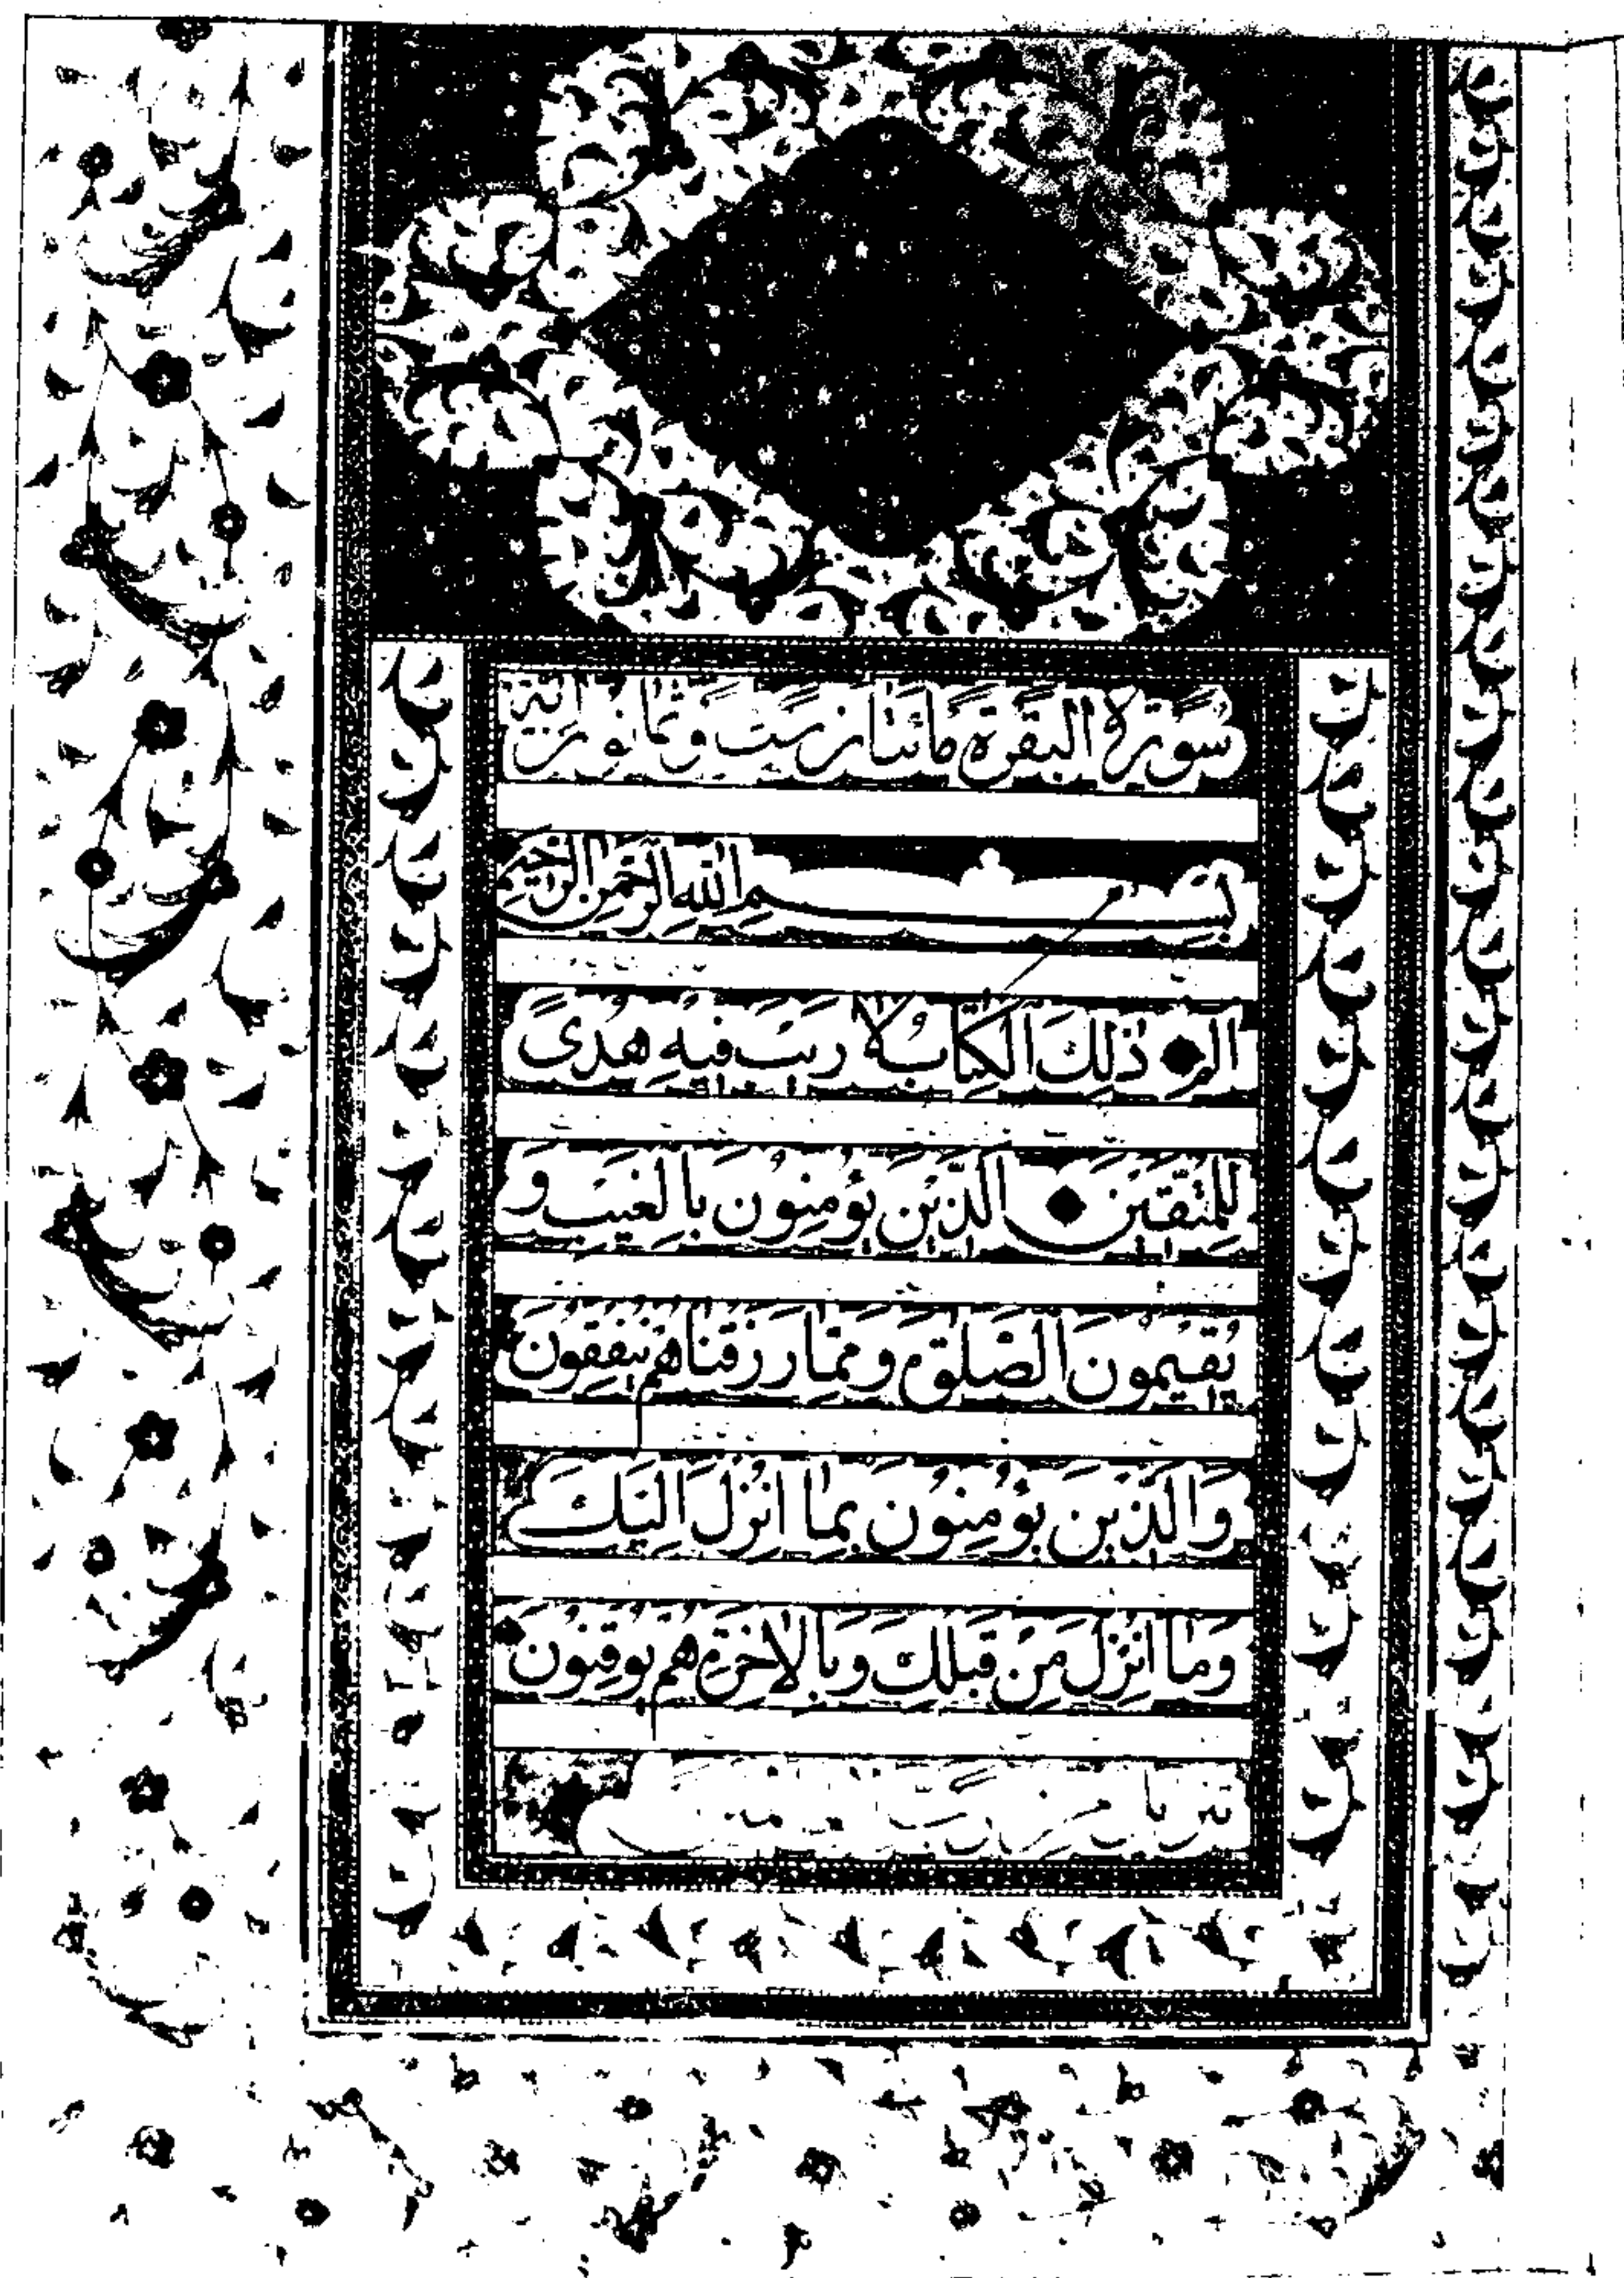 سُورَةُ الْبَقَرَةِ مِائَتَانِ وَسِتٌّ وَثَمَانُونَ آيَةً
بِسْمِ اللهِ الرَّحْمٰنِ الرَّحِيمِ
الٓمٓ ذٰلِكَ الْكِتَابُ لَا رَيْبَ فِيهِ هُدًى
لِلْمُتَّقِينَ الَّذِينَ يُؤْمِنُونَ بِالْغَيْبِ وَ
يُقِيمُونَ الصَّلٰوةَ وَمِمَّا رَزَقْنَاهُمْ يُنْفِقُونَ
وَالَّذِينَ يُؤْمِنُونَ بِمَا أُنْزِلَ إِلَيْكَ
وَمَا أُنْزِلَ مِنْ قَبْلِكَ وَبِالْآخِرَةِ هُمْ يُوقِنُونَ